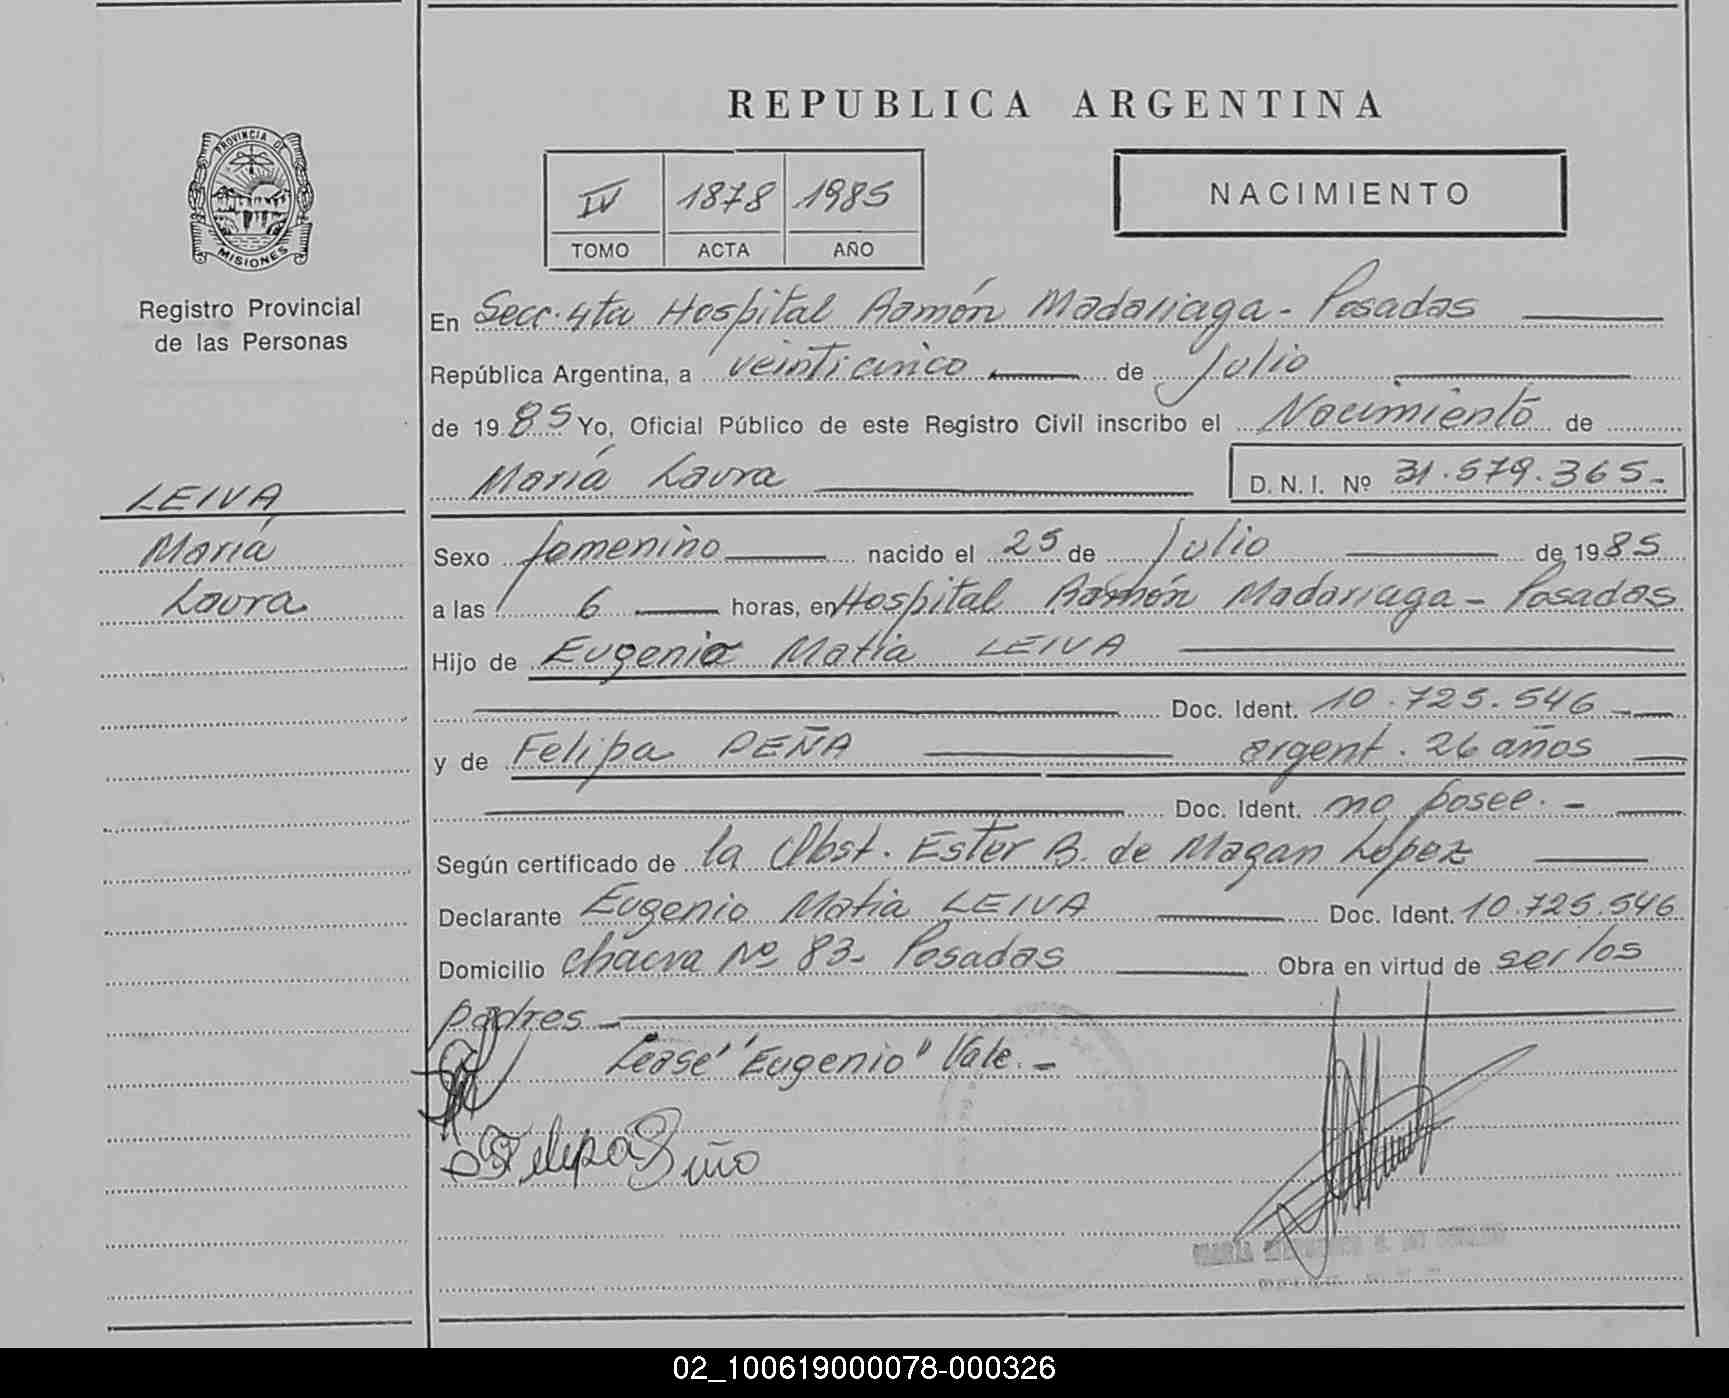 REPUBLICA ARGENTINA
PROVINCIA DE
MISIONES
Registro Provincial
de las Personas
LEIVA
María
Laura
IV 1878 1985
TOMO ACTA AÑO
NACIMIENTO
En Secc. 4ta Hospital Ramón Madariaga - Posadas
República Argentina, a veinticinco de Julio
de 1985 Yo, Oficial Público de este Registro Civil inscribo el Nacimiento de
María Laura D. N. I. Nº 31.579.365-
Sexo femenino nacido el 25 de Julio de 1985
a las 6 horas, en Hospital Ramón Madariaga - Posadas
Hijo de Eugenio Matia LEIVA
Doc. Ident. 10.725.546
y de Felipa PEÑA argent. 26 años
Doc. Ident. no posee. -
Según certificado de la Obst. Ester B. de Magan López
Declarante Eugenio Matia LEIVA Doc. Ident. 10.725.546
Domicilio chacra Nº 83- Posadas Obra en virtud de ser los
padres -
Lease "Eugenio" Vale. -
Felipa
02_100619000078-000326